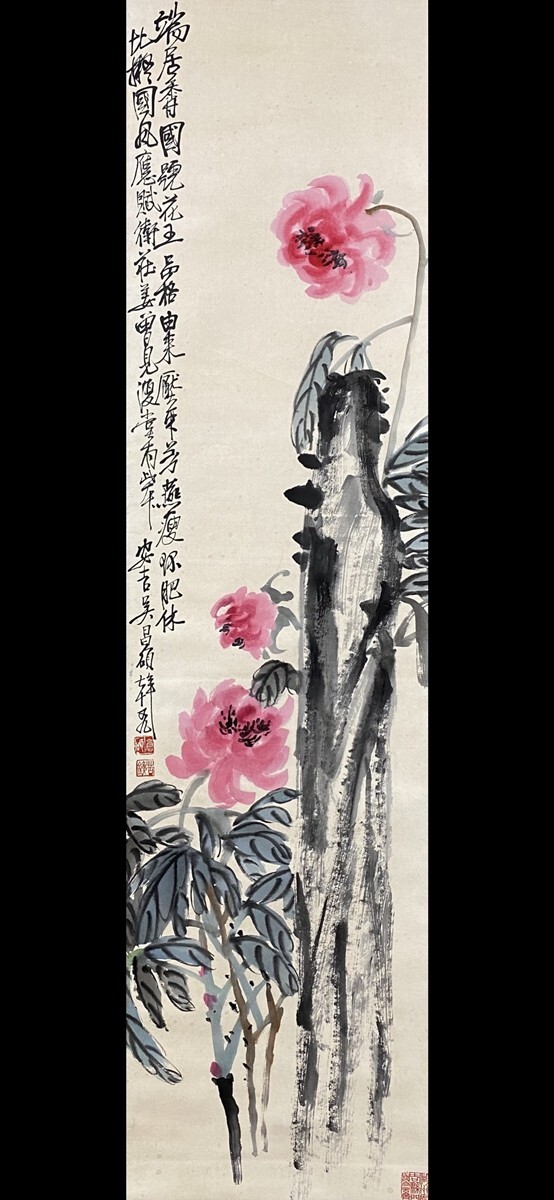 端居香國號花王品格由來壓衆芳燕瘦環肥休
比擬國風應賦衛莊姜曾見復堂有此本安吉吳昌碩